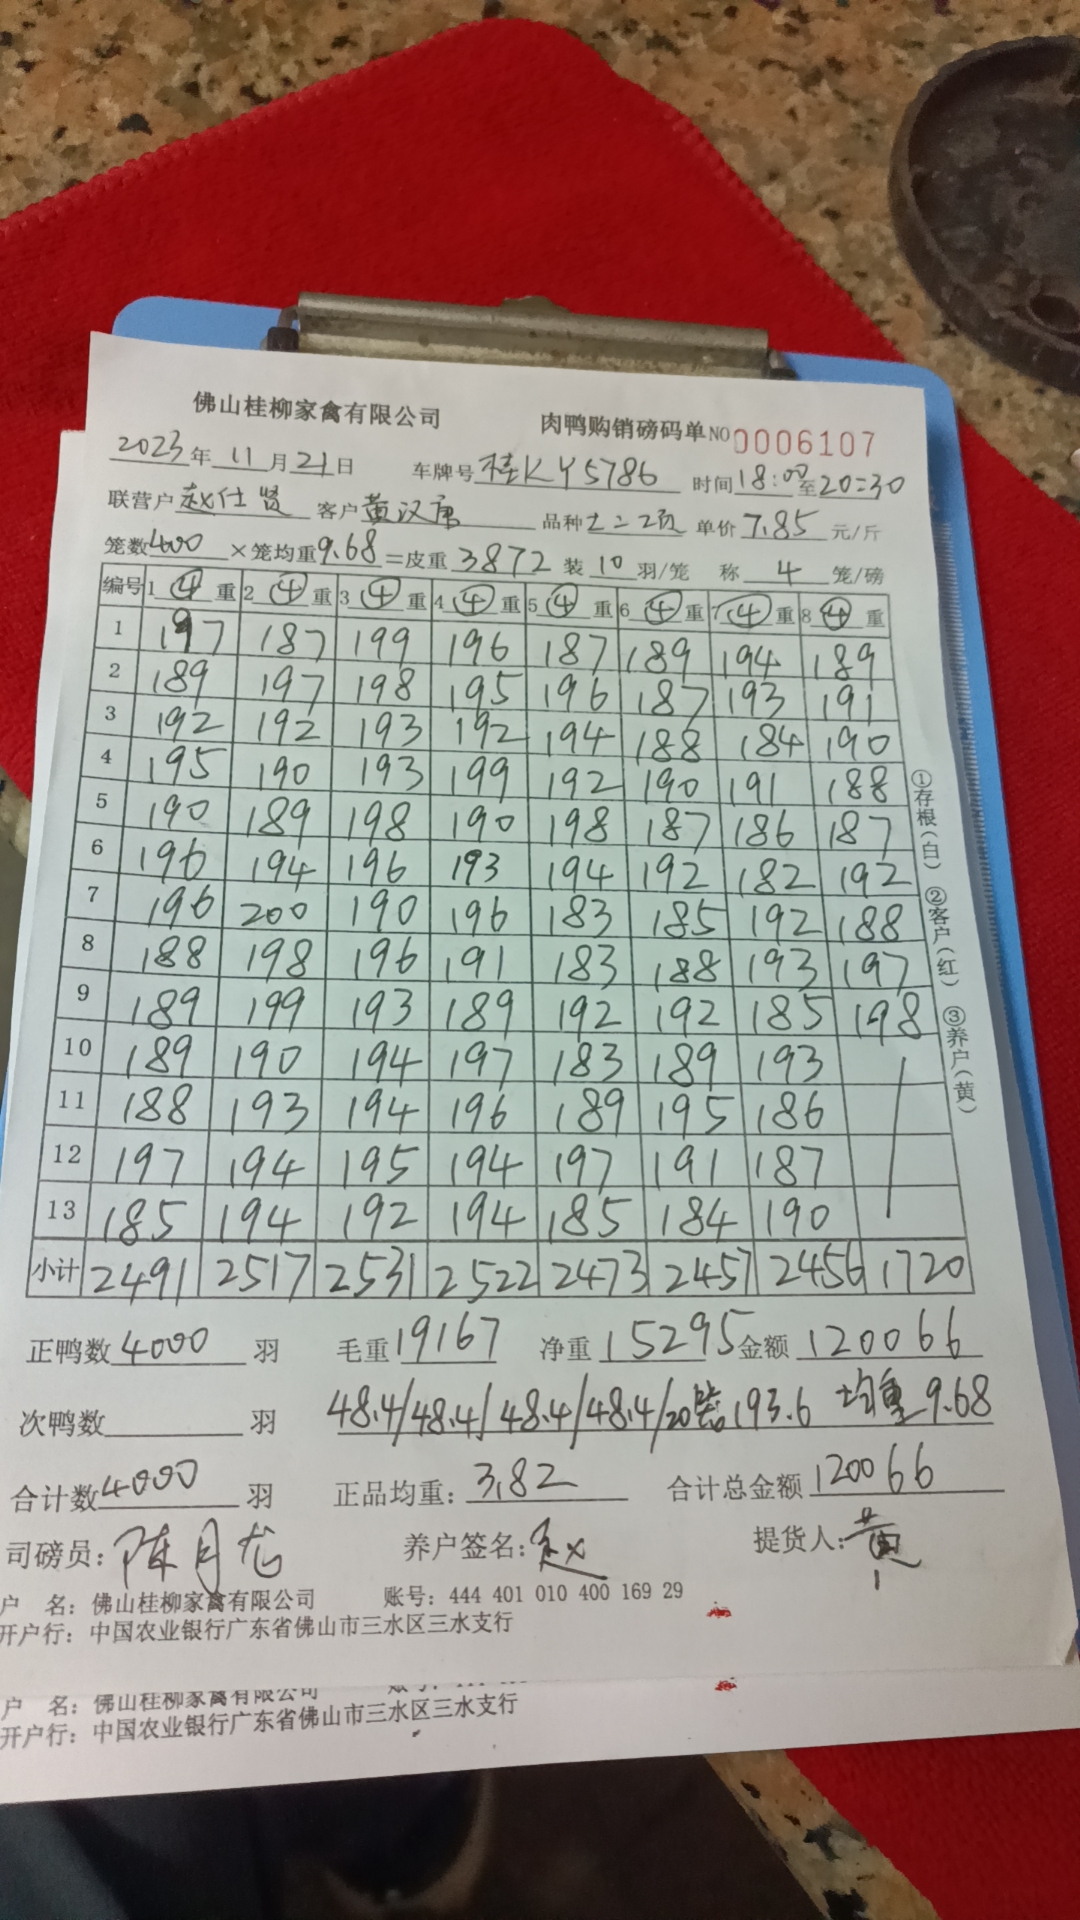 佛山桂柳家禽有限公司 肉鸭购销磅码单 NO 0006107
2023年11月21日 车牌号 桂KY5786 时间 18:00至20:30
联营户 赵仕贤 客户 黄汉唐 品种 单价 7.85 元/斤
笼数 400 ×笼均重 9.68 =皮重 3872 装 10 羽/笼 称 4 笼/磅
编号 1 ④ 重 2 ④ 重 3 ④ 重 4 ④ 重 5 ④ 重 6 ④ 重 7 ④ 重 8 ④ 重
1 197 187 199 196 187 189 194 189
2 189 197 198 195 196 187 193 191
3 192 192 193 192 194 188 184 190
4 195 190 193 199 192 190 191 188
5 190 189 198 190 198 187 186 187
6 196 194 196 193 194 192 182 192
7 196 200 190 196 183 185 192 188
8 188 198 196 191 183 188 193 197
9 189 199 193 189 192 192 185 198
10 189 190 194 197 183 189 193
11 188 193 194 196 189 195 186
12 197 194 195 194 197 191 187
13 185 194 192 194 185 184 190
小计 2491 2517 2531 2522 2473 2457 2456 1720
①存根(白) ②客户(红) ③养户(黄)
正鸭数 4000 羽 毛重 19167 净重 15295 金额 120066
次鸭数 羽 48.4/48.4/48.4/48.4/20 193.6 均重 9.68
合计数 4000 羽 正品均重: 3.82 合计总金额 120066
司磅员: 陈月龙 养户签名: 赵 提货人: 黄
户 名: 佛山桂柳家禽有限公司 账号: 444 401 010 400 169 29
开户行: 中国农业银行广东省佛山市三水区三水支行
户 名: 佛山桂柳家禽有限公司 账号:
开户行: 中国农业银行广东省佛山市三水区三水支行